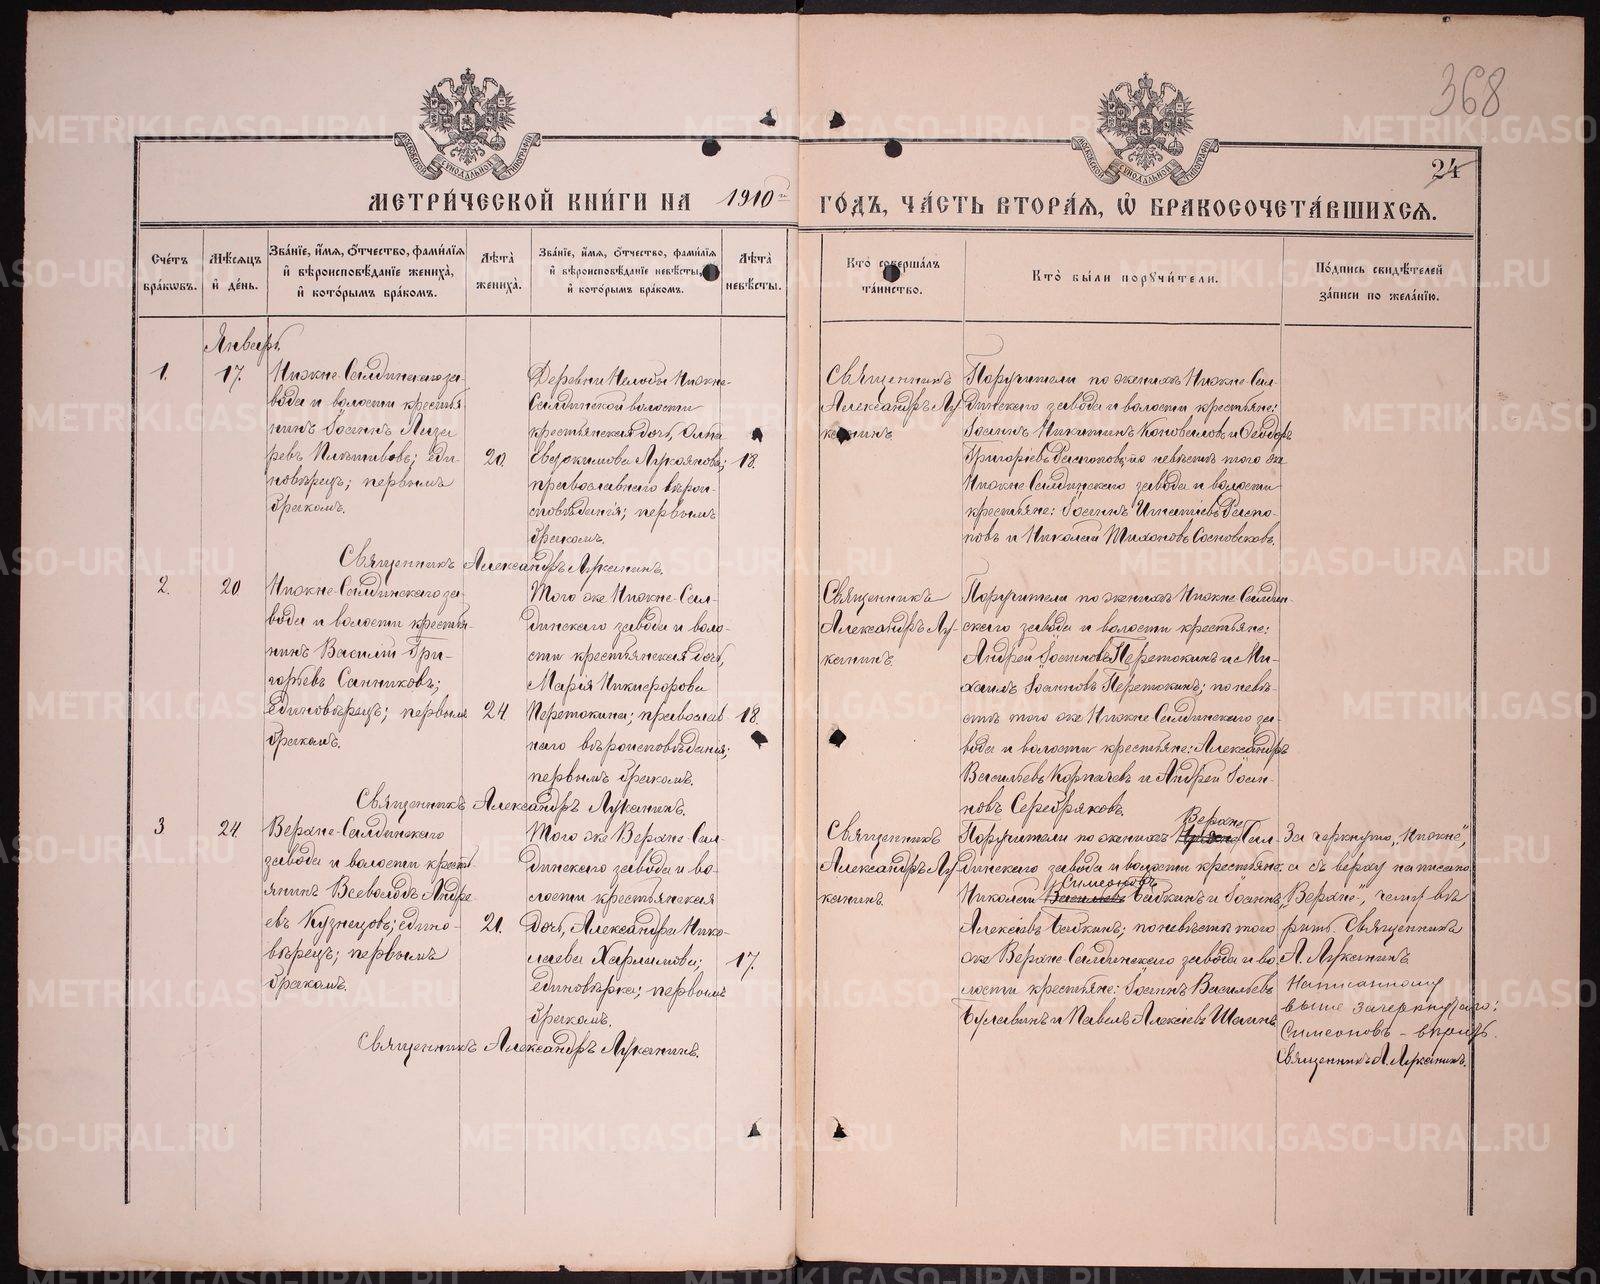 368
24
МЕТРИ́ЧЕСКОЙ КНИ́ГИ НА 1910 го́дъ, ча́сть втора́я, ѽ бракосочета́вшихся.
Сче́тъ бра́кѡвъ.
Мѣ́сяцъ и де́нь.
Зва́нїе, и́мя, ѻ́тчество, фами́лїя и вѣроисповѣ́данїе жениха̀, и кото́рымъ бра́комъ.
Лѣ́та жениха̀.
Зва́нїе, и́мя, ѻ́тчество, фами́лїя и вѣроисповѣ́данїе невѣ́сты, и кото́рымъ бра́комъ.
Лѣ́та невѣ́сты.
Кто̀ соверша́лъ та́инство.
Кто̀ бы́ли поручи́тели.
По́дпись свидѣ́телей за́писи по жела́нїю.
Январь.
1.
17.
Нижне-Салдинскаго за-
вода и волости крестья
нинъ Іоаннъ Лаза
ревъ
еди-
новѣрецъ; первымъ
бракомъ.
20.
Деревни Нелобы Нижне-
Салдинской волости
крестьянская дочь,
Евдокимова Лукоянова;
православнаго вѣрои-
сповѣданія; первымъ
бракомъ.
18.
Священникъ
Александръ Лу
канинъ
Поручители по женихѣ Нижне-Сал-
динскаго завода и волости крестьяне:
Іоаннъ Никитинъ Коноваловъ и Ѳеодоръ
Григоріевъ Распоповъ; по невѣстѣ того же
Нижне-Салдинскаго завода и волости
крестьяне: Іоаннъ Игнатіевъ Распо-
повъ и Николай Тихоновъ Сосновсковъ.
Священникъ Александръ Луканинъ.
2.
20
Нижне-Салдинскаго за-
вода и волости крестья-
нинъ Василій Гри-
горьевъ Санниковъ;
единовѣрецъ; первымъ
бракомъ.
24.
Того же Нижне-Сал-
динскаго завода и воло-
сти крестьянская дочь,
Марія Никифорова
Перетокина; православ
наго вѣроисповѣданія;
первымъ бракомъ.
18.
Священникъ
Александръ Лу-
канинъ
Поручители по женихѣ Нижне-Салдин-
скаго завода и волости крестьяне:
Андрей Іоанновъ Перетокинъ и Ми-
хаилъ Іоанновъ Перетокинъ; по невѣ-
стѣ того же Нижне-Салдинскаго за-
вода и волости крестьяне: Александръ
Васильевъ Корпачевъ и Андрей Іоан-
новъ Серебряковъ.
Священникъ Александръ Луканинъ.
3
24
Верхне-Салдинскаго
завода и волости кресть
янинъ Всеволодъ Андре
евъ Кузнецовъ; едино-
вѣрецъ; первымъ
бракомъ.
21.
Того же Верхне-Сал-
динскаго завода и во-
лости крестьянская
дочь, Александра Нико-
лаева Харламова;
единовѣрка; первымъ
бракомъ.
17.
Священникъ
Александръ Лу
канинъ
Верхне
Поручители по женихѣ Нижне Сал-
динскаго завода и волости крестьяне:
Симеоновъ
Николай Васильевъ Бабкинъ и Іоаннъ
Алексіевъ Бабкинъ; по невѣстѣ того
же Верхне-Салдинскаго завода и во-
лости крестьяне: Іоаннъ Васильевъ
Булавинъ и Павелъ Алексіевъ Шаинъ
Зачеркнуто „Нижне“,
а съ верху написано
„Верхне“, чему вѣ
рить. Священникъ
А. Луканинъ
Написанному
выше зачеркнутаго:
Симеоновъ – вѣрить.
Священникъ А. Луканинъ.
Священникъ Александръ Луканинъ.
METRIKI.GASO-URAL.RU